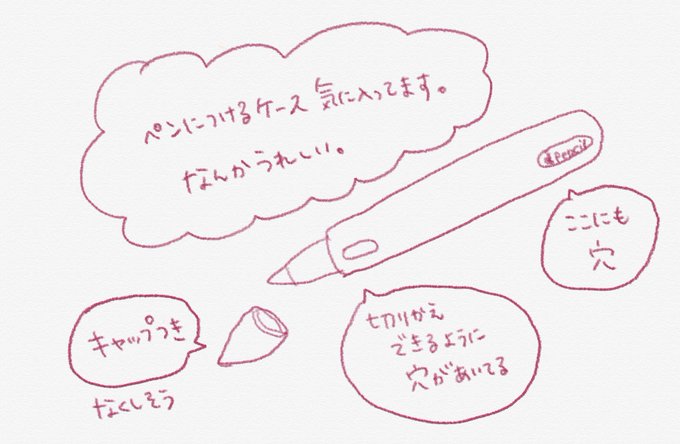 ペンにつけるケース 気に入ってます。
なんかうれしい。
Pencil
ここにも
穴
切りかえ
できるように
穴があいてる
キャップつき
なくしそう